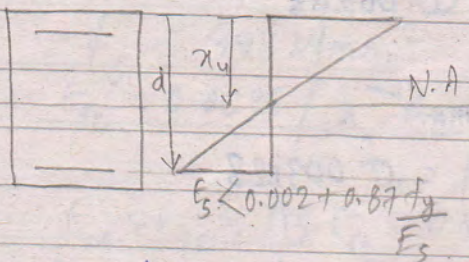 d
xu
N.A
Es < 0.002 + 0.87 fy/Es